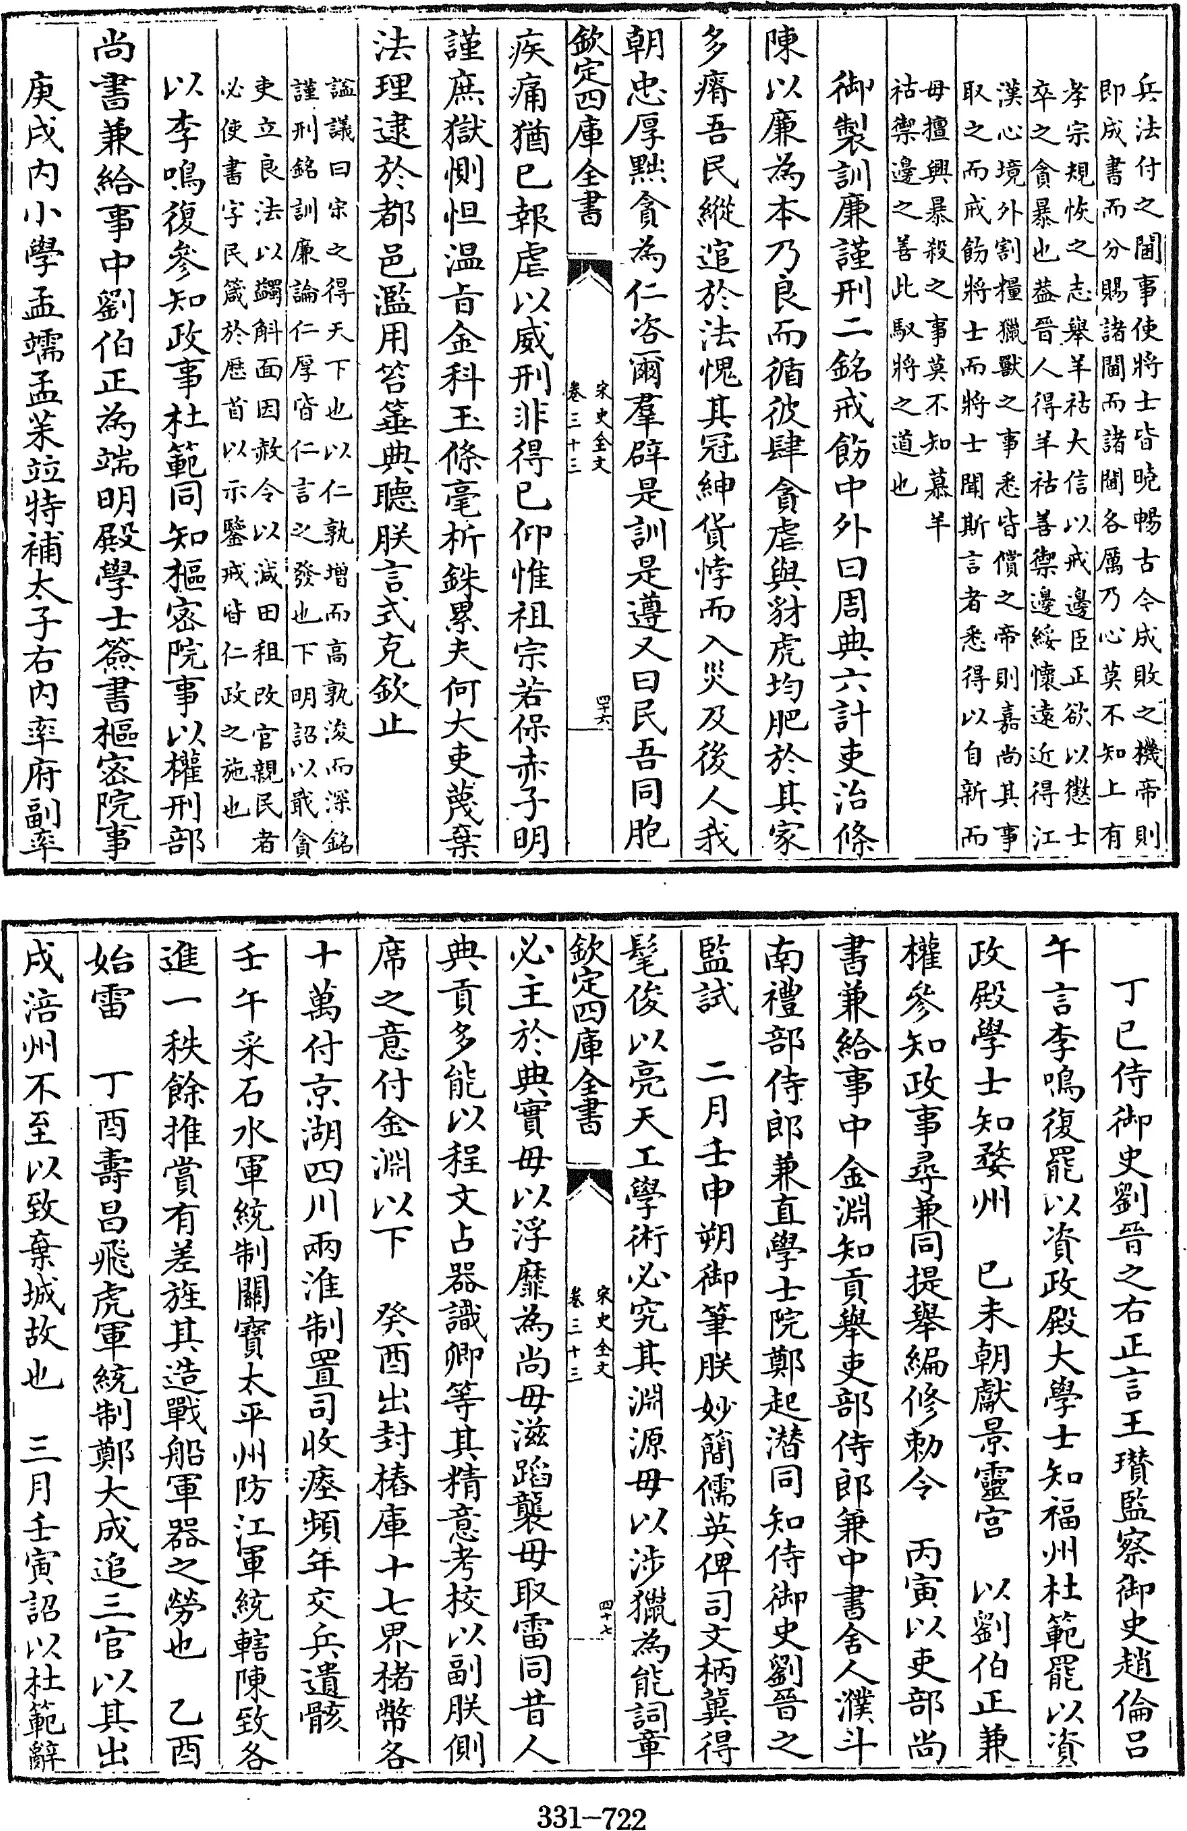 兵法付之閫事使將士皆曉暢古今成敗之機帝則
即成書而分賜諸閫而諸閫各厲乃心莫不知上有
孝宗規恢之志舉羊祜大信以戒邊臣正欲以懲士
卒之貪暴也葢晉人得羊祜善禦邊綏懷遠近得江
漢心境外割糧獵獸之事悉皆償之帝則嘉尚其事
取之而戒飭將士而將士聞斯言者悉得以自新而
毋擅興暴殺之事莫不知慕羊
祜禦邊之善此馭將之道也
御製訓廉謹刑二銘戒飭中外曰周典六計吏治條
陳以廉為本乃良而循彼肆貪虐與豺虎均肥於其家
多瘠吾民縱逭於法愧其冠紳貨悖而入災及後人我
朝忠厚黜貪為仁咨爾羣辟是訓是遵又曰民吾同胞
欽定四庫全書
宋史全文
卷三十三
四十六
疾痛猶已報虐以威刑非得已仰惟祖宗若保赤子明
謹庶獄惻怛温旨金科玉條毫析銖累夫何大吏蔑棄
法理逮於都邑濫用笞箠典聽朕言式克欽止
謚議曰宋之得天下也以仁孰增而高孰浚而深銘
謹刑銘訓廉論仁厚皆仁言之發也下明詔以戢貪
吏立良法以蠲斛面因赦令以減田租改官親民者
必使書字民箴於歴首以示鑒戒皆仁政之施也
以李鳴復參知政事杜範同知樞密院事以權刑部
尚書兼給事中劉伯正為端明殿學士簽書樞密院事
庚戌内小學孟蠕孟茱竝特補太子右内率府副率
丁已侍御史劉晉之右正言王瓚監察御史趙倫吕
午言李鳴復罷以資政殿大學士知福州杜範罷以資
政殿學士知婺州　已未朝獻景靈宮　以劉伯正兼
權參知政事尋兼同提舉編修勅令　丙寅以吏部尚
書兼給事中金淵知貢舉吏部侍郎兼中書舍人濮斗
南禮部侍郎兼直學士院鄭起潜同知侍御史劉晉之
監試　二月壬申朔御筆朕妙簡儒英俾司文柄兾得
髦俊以亮天工學術必究其淵源毋以涉獵為能詞章
欽定四庫全書
宋史全文
卷三十三
四十七
必主於典實毋以浮靡為尚毋滋蹈襲毋取雷同昔人
典貢多能以程文占器識卿等其精意考校以副朕側
席之意付金淵以下　癸酉出封樁庫十七界楮幣各
十萬付京湖四川兩淮制置司收瘞頻年交兵遺骸
壬午采石水軍統制關寶太平州防江軍統轄陳致各
進一秩餘推賞有差旌其造戰船軍器之勞也　乙酉
始雷　丁酉壽昌飛虎軍統制鄭大成追三官以其出
戍涪州不至以致棄城故也　三月壬寅詔以杜範辭
331-722